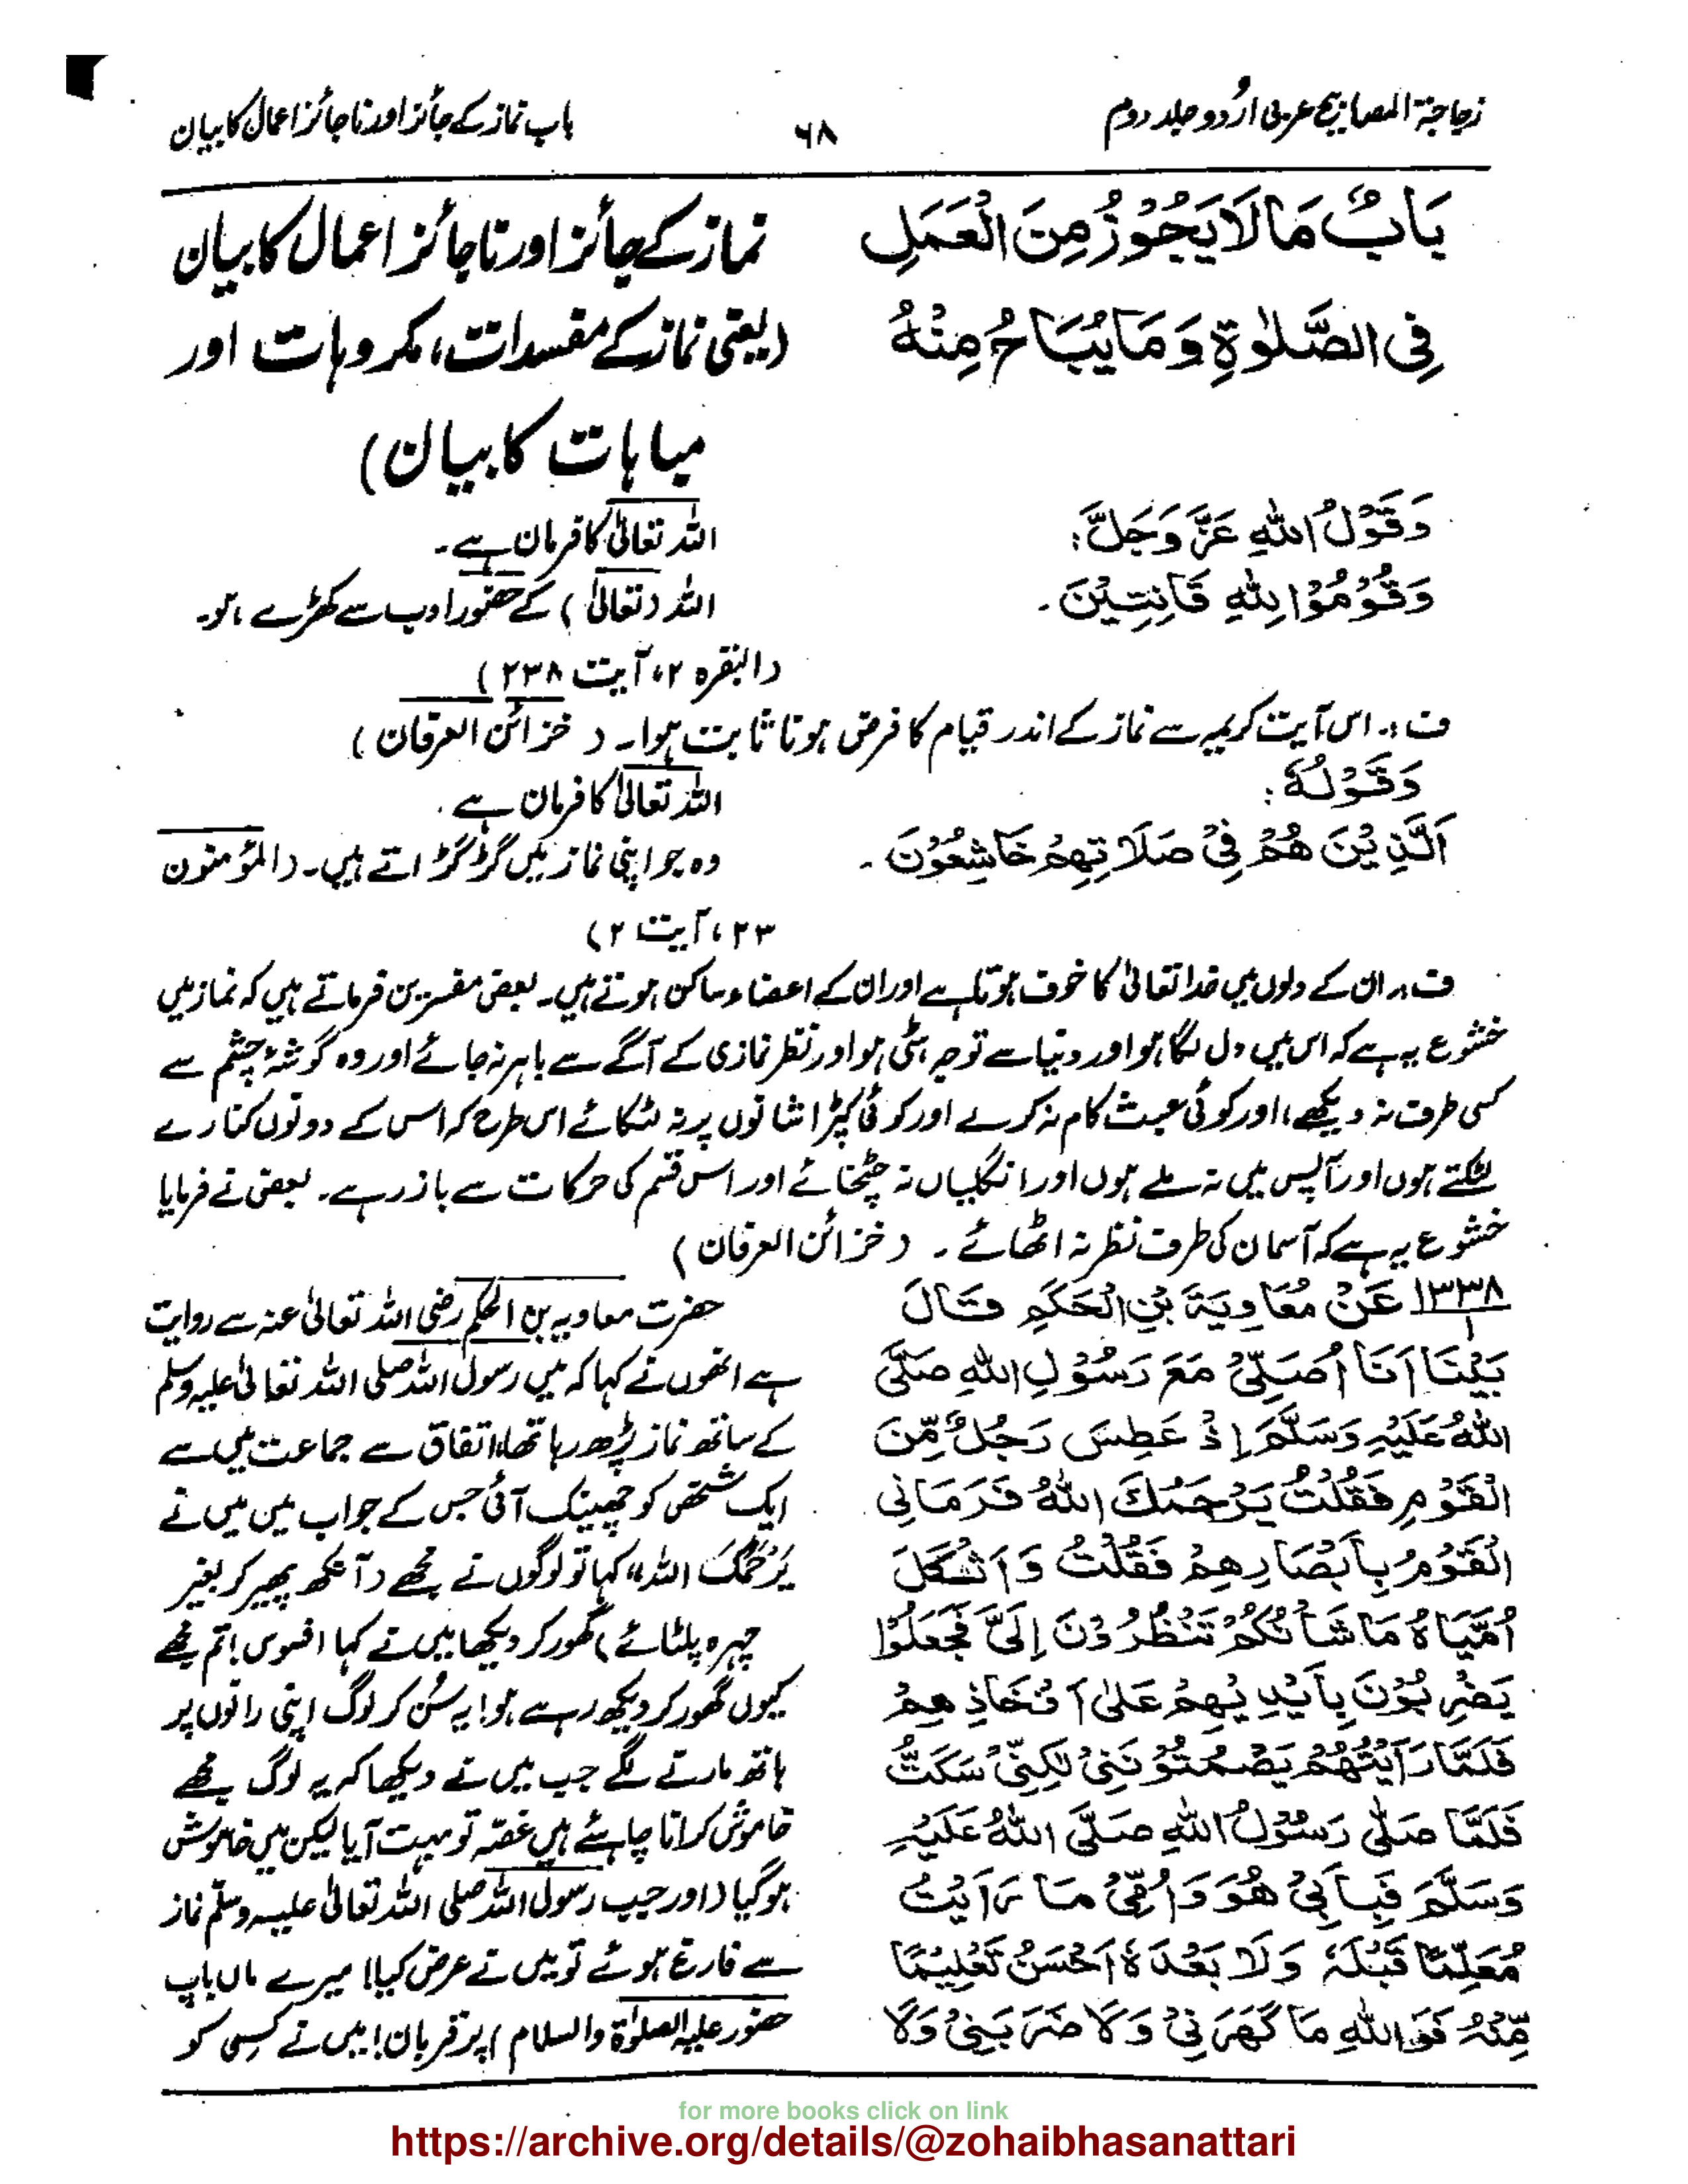 زجاجۃ المصابیح عربی اُردو جلد دوم
۶۸
باب نماز کے جائز اور ناجائز اعمال کا بیان
بَابُ مَا لَا يَجُوْزُ مِنَ الْعَمَلِ
فِي الصَّلٰوةِ وَمَا يُبَاحُ مِنْهُ
نماز کے جائز اور ناجائز اعمال کا بیان
(یعنی نماز کے مفسدات، مکروہات اور
مباہات کا بیان)
وَقَوْلُ اللهِ عَزَّ وَجَلَّ:
اللہ تعالیٰ کا فرمان ہے۔
وَقُوْمُوْا لِلّٰهِ قَانِتِيْنَ۔
اللہ (تعالیٰ) کے حضور ادب سے کھڑے ہو۔
(البقرہ ۲، آیت ۲۳۸)
ف:۔ اس آیت کریمہ سے نماز کے اندر قیام کا فرض ہونا ثابت ہوا۔ (خزائن العرفان)
وَقَوْلُهٗ:
اللہ تعالیٰ کا فرمان ہے۔
اَلَّذِيْنَ هُمْ فِيْ صَلَاتِهِمْ خَاشِعُوْنَ۔
وہ جو اپنی نماز میں گڑگڑاتے ہیں۔ (المؤمنون
۲۳، آیت ۲)
ف:۔ ان کے دلوں میں خدا تعالیٰ کا خوف ہوتا ہے اور ان کے اعضاء ساکن ہوتے ہیں۔ بعض مفسرین فرماتے ہیں کہ نماز میں
خشوع یہ ہے کہ اس میں دل لگا ہو اور دنیا سے توجہ ہٹی ہو اور نظر نمازی کے آگے سے باہر نہ جائے اور وہ گوشۂ چشم سے
کسی طرف نہ دیکھے، اور کوئی عبث کام نہ کرے اور کوئی کپڑا شانوں پر نہ لٹکائے اس طرح کہ اس کے دونوں کنارے
لٹکتے ہوں اور آپس میں نہ ملے ہوں اور انگلیاں نہ چٹخائے اور اس قسم کی حرکات سے باز رہے۔ بعض نے فرمایا
خشوع یہ ہے کہ آسمان کی طرف نظر نہ اٹھائے۔ (خزائن العرفان)
۱۳۳۸ عَنْ مُعَاوِيَةَ بْنِ الْحَكَمِ قَالَ
۱
بَيْنَا اَنَا اُصَلِّيْ مَعَ رَسُوْلِ اللهِ صَلَّى
اللهُ عَلَيْهِ وَسَلَّمَ اِذْ عَطِسَ رَجُلٌ مِّنَ
الْقَوْمِ فَقُلْتُ يَرْحَمُكَ اللهُ فَرَمَانِي
الْقَوْمُ بِاَبْصَارِهِمْ فَقُلْتُ وَاثُكْلَ
اُمِّيَاهُ مَا شَأْنُكُمْ تَنْظُرُوْنَ اِلَيَّ فَجَعَلُوْا
يَضْرِبُوْنَ بِاَيْدِيْهِمْ عَلٰى اَفْخَاذِهِمْ
فَلَمَّا رَاَيْتُهُمْ يَصْمُتُوْنَنِيْ لٰكِنِّيْ سَكَتُّ
فَلَمَّا صَلّٰى رَسُوْلُ اللهِ صَلَّى اللهُ عَلَيْهِ
وَسَلَّمَ فَبِاَبِيْ هُوَ وَاُمِّيْ مَا رَاَيْتُ
مُعَلِّمًا قَبْلَهٗ وَلَا بَعْدَهٗ اَحْسَنُ تَعْلِيْمًا
مِّنْهُ فَوَ اللهِ مَا كَهَرَنِيْ وَلَا ضَرَبَنِيْ وَلَا
حضرت معاویہ بن الحکم رضی اللہ تعالیٰ عنہ سے روایت
ہے انھوں نے کہا کہ میں رسول اللہ صلی اللہ تعالیٰ علیہ وسلم
کے ساتھ نماز پڑھ رہا تھا، اتفاق سے جماعت میں سے
ایک شخص کو چھینک آئی جس کے جواب میں میں نے
یَرْحَمُکَ اللہ، کہا تو لوگوں نے مجھے (آنکھ پھیر کر بغیر
چہرہ پلٹائے) گھور کر دیکھا میں نے کہا افسوس! تم مجھے
کیوں گھور کر دیکھ رہے ہو! یہ سُن کر لوگ اپنی رانوں پر
ہاتھ مارنے لگے جب میں نے دیکھا کہ یہ لوگ مجھے
خاموش کرانا چاہتے ہیں غصّہ تو بہت آیا لیکن میں خاموش
ہو گیا (اور جب رسول اللہ صلی اللہ تعالیٰ علیہ وسلّم نماز
سے فارغ ہوئے تو میں نے عرض کیا! میرے ماں باپ
حضور علیہ الصلوٰۃ والسلام) پر قربان! میں نے کسی کو
for more books click on link
https://archive.org/details/@zohaibhasanattari